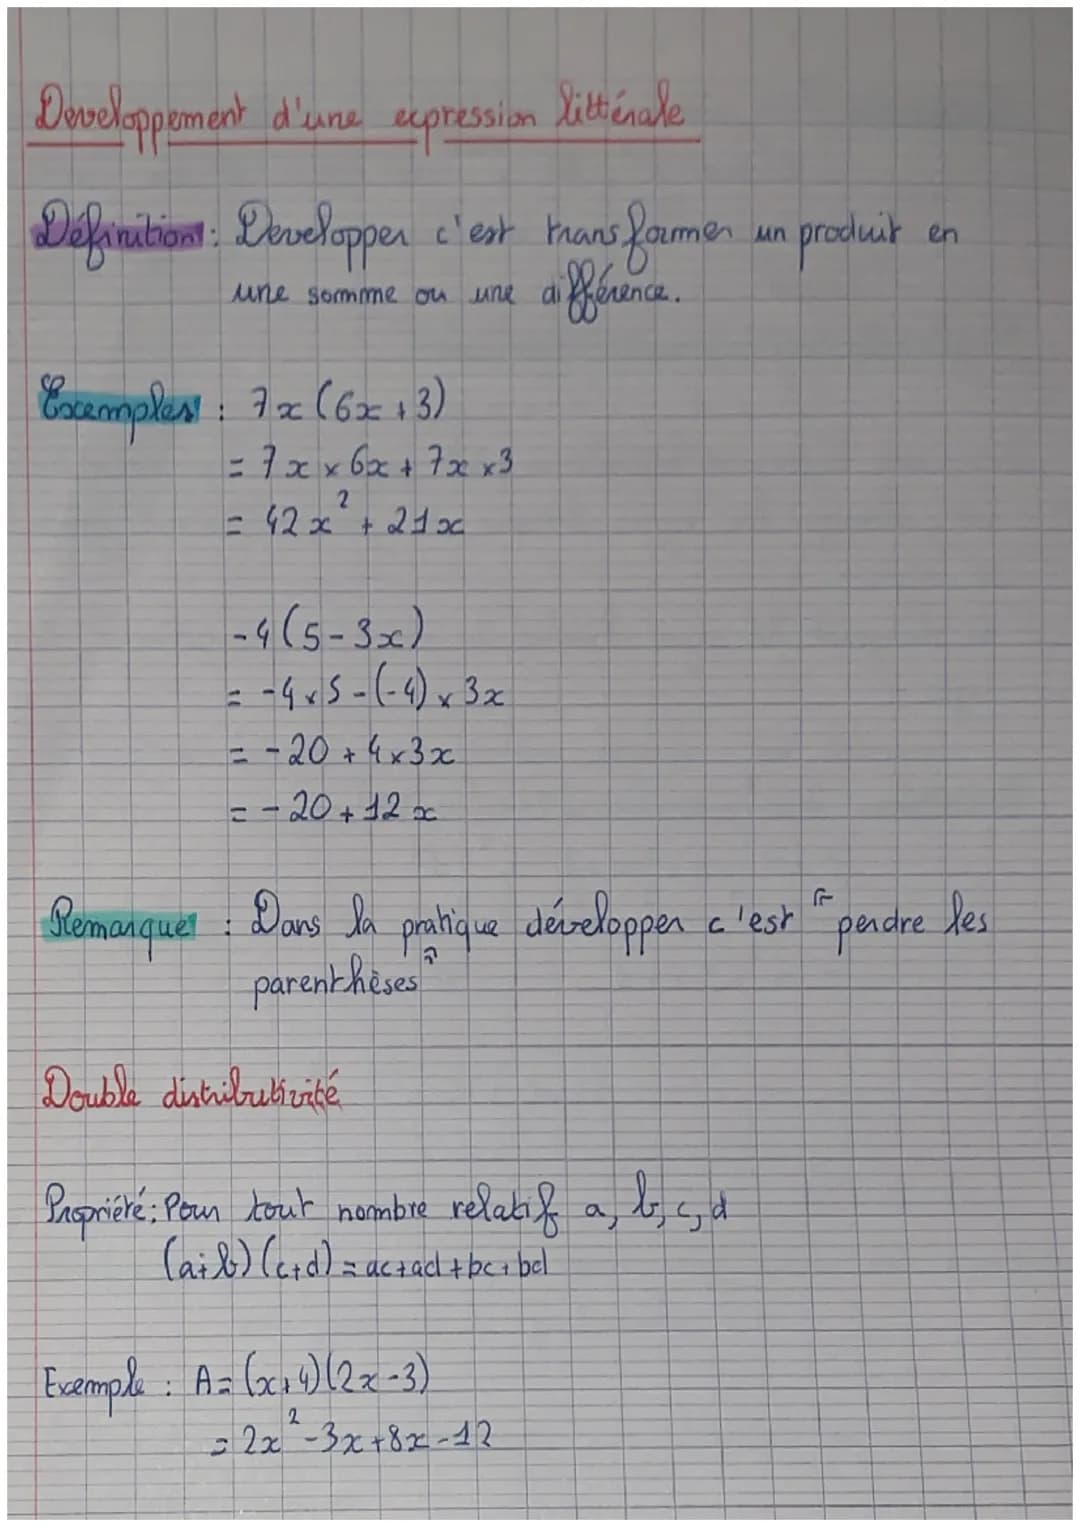 Developpement d'une expression littérale
Définition : Developper c'est transformer un produit en
une somme ou une différence.
Exemples : 7x(6x+3)
= 7x × 6x + 7x × 3
= 42x² + 21x
-4(5-3x)
= -4×5-(-4)×3x
= -20 + 4×3x
= -20 + 12x
Remarque : Dans la pratique développer c'est "perdre les
parenthèses"
Double distributivité
Propriété : Pour tout nombre relatif a, b, c, d
(a+b)(c+d) = ac+ad+bc+bd
Exemple : A = (x+4)(2x-3)
= 2x²-3x+8x-12